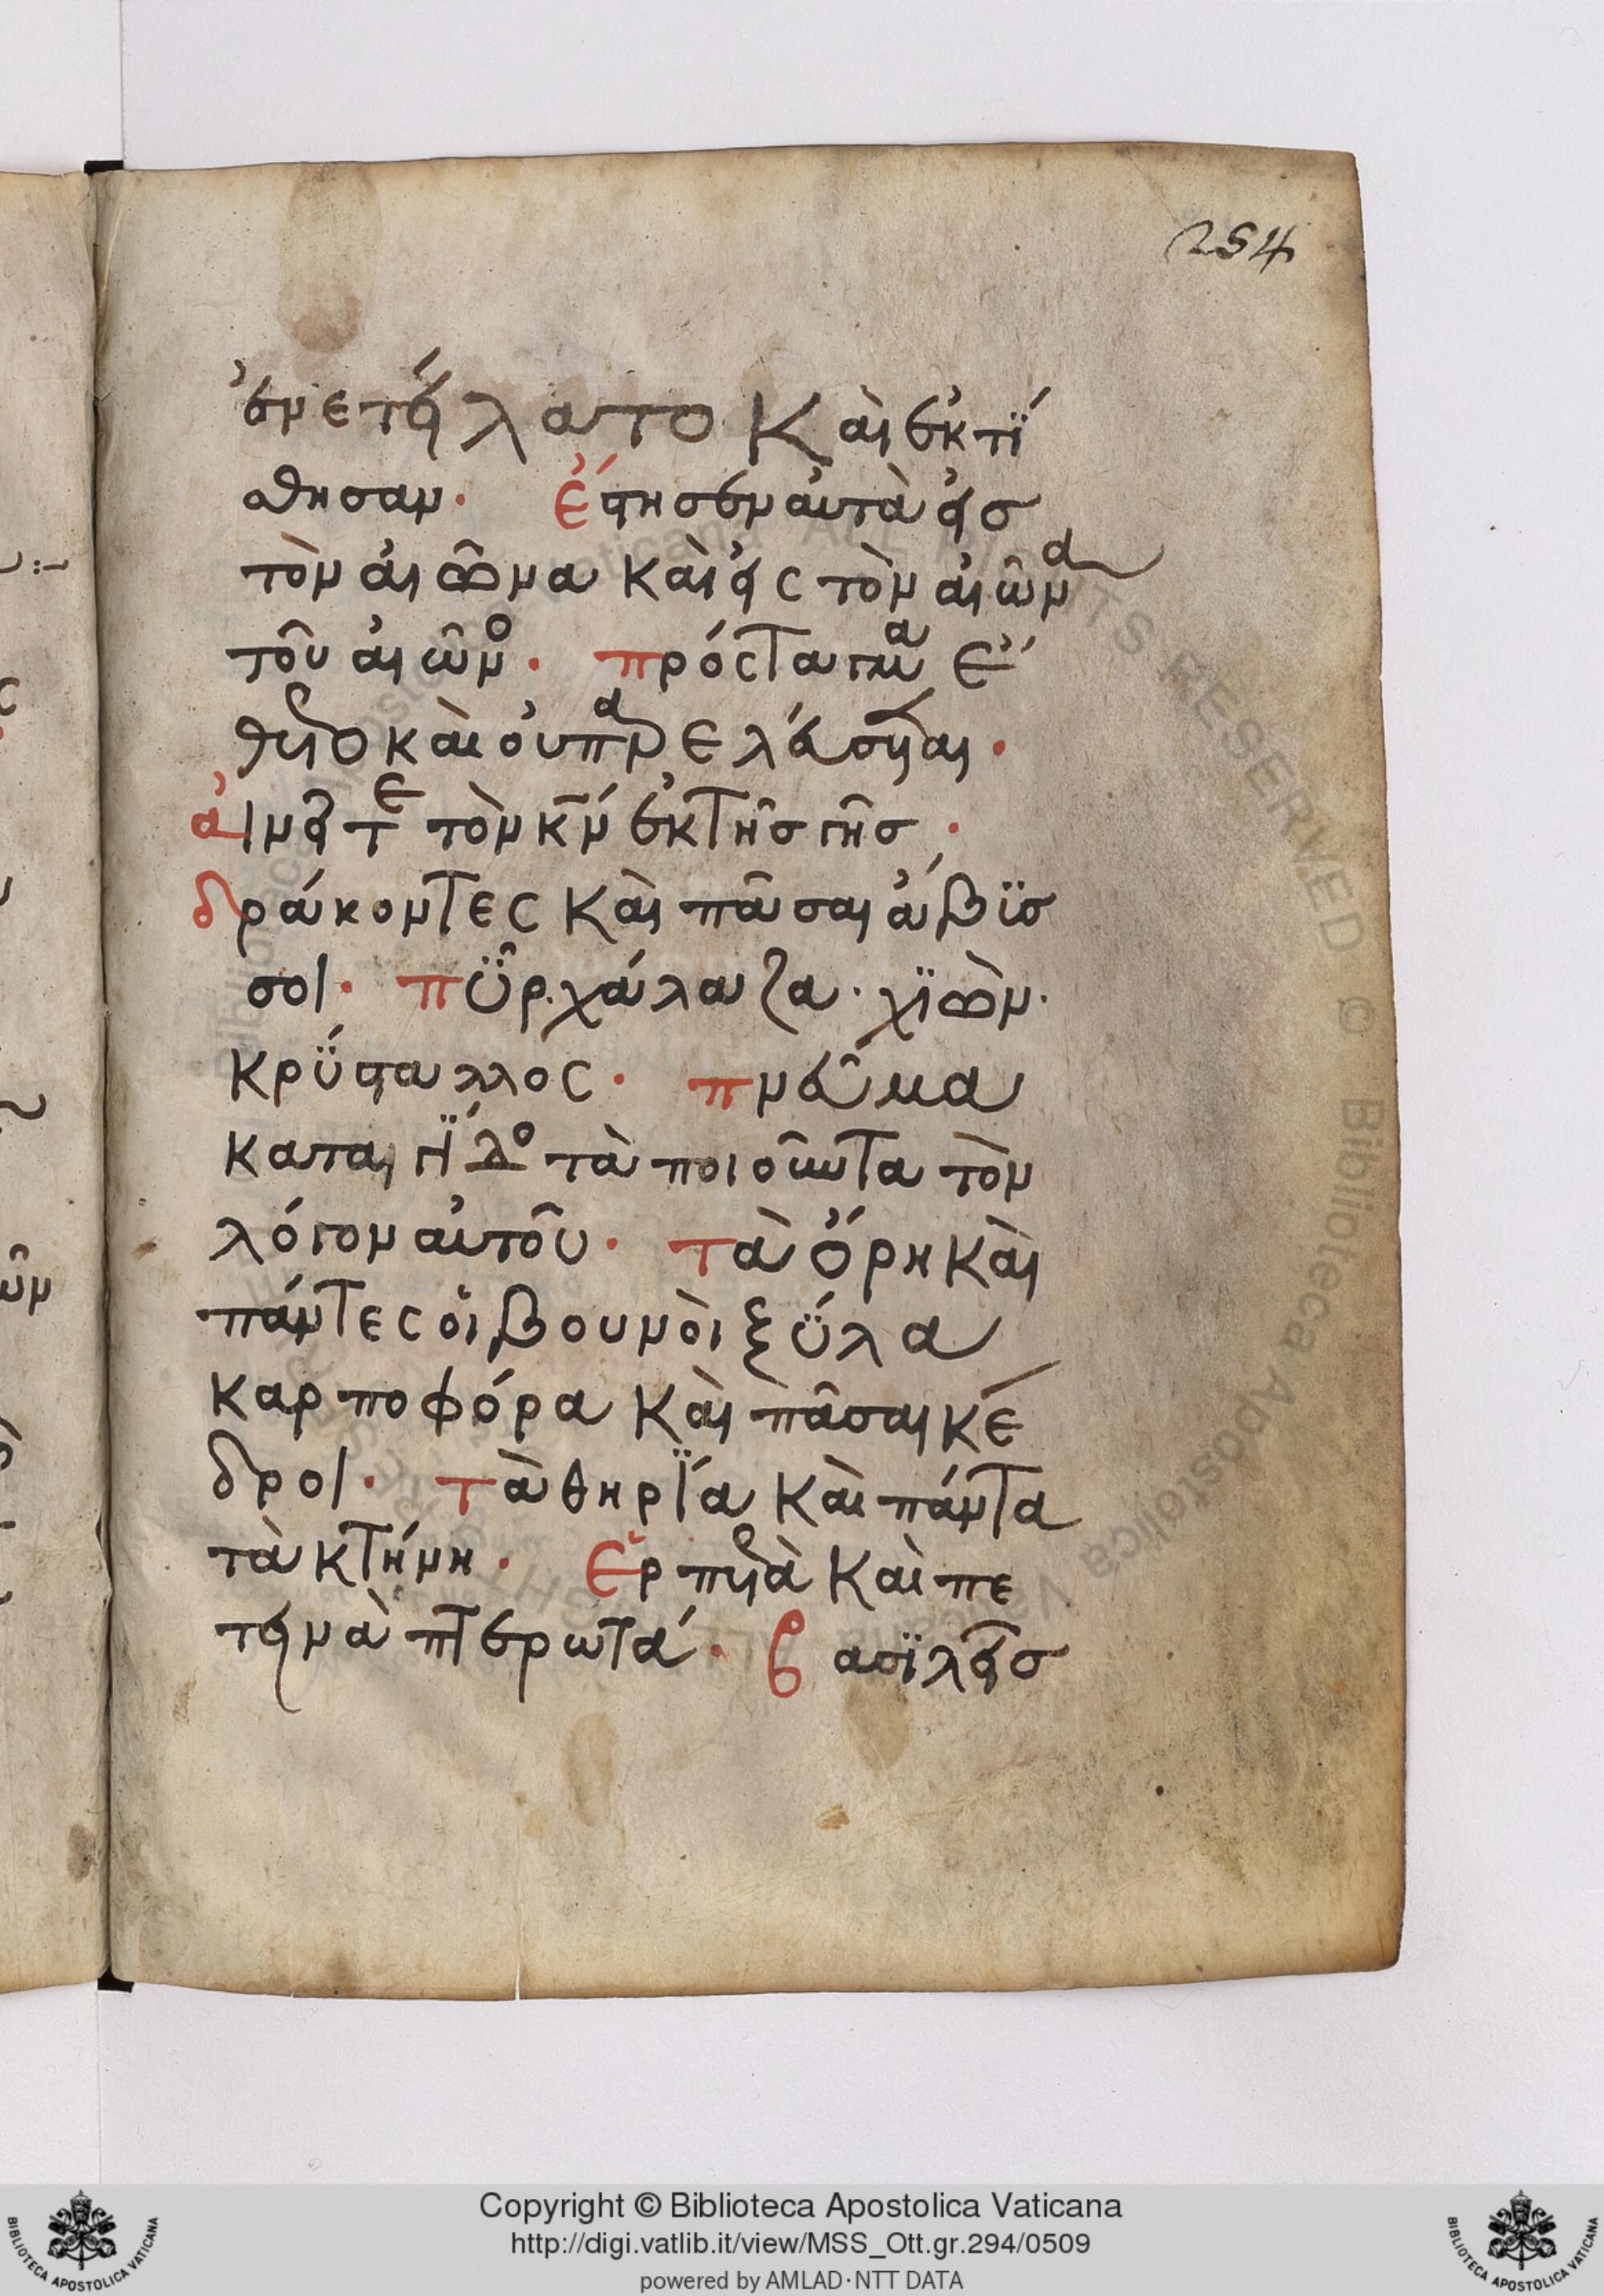 254
ἐνετείλατο καὶ ἐκτί
σθησαν· ἔστησεν αὐτὰ εἰσ
τὸν αἰῶνα καὶ εἰς τὸν αἰῶνα
τοῦ αἰῶνο· πρόσταγμα ἔ
θετο καὶ οὐ παρελεύσεται·
αἰνεῖτε τὸν κ̅ν̅ ἐκ τῆσ γῆσ·
δράκοντες καὶ πᾶσαι ἄβϋσ
σοι· πῦρ· χάλαζα· χϊὼν·
κρΰσταλλος· πνεῦμα
καταιγΐδο τὰ ποιοῦντα τὸν
λόγον αὐτοῦ· τὰ ὄρη καὶ
πάντες οἱ βουνοὶ ξΰλα
καρποφόρα καὶ πᾶσαι κέ
δροι· τὰ θηρΐα καὶ πάντα
τὰ κτήνη· ἑρπετὰ καὶ πε
τεινὰ πτερωτά· βασϊλεῖσ
Copyright © Biblioteca Apostolica Vaticana
http://digi.vatlib.it/view/MSS_Ott.gr.294/0509
powered by AMLAD·NTT DATA
BIBLIOTECA APOSTOLICA VATICANA
BIBLIOTECA APOSTOLICA VATICANA